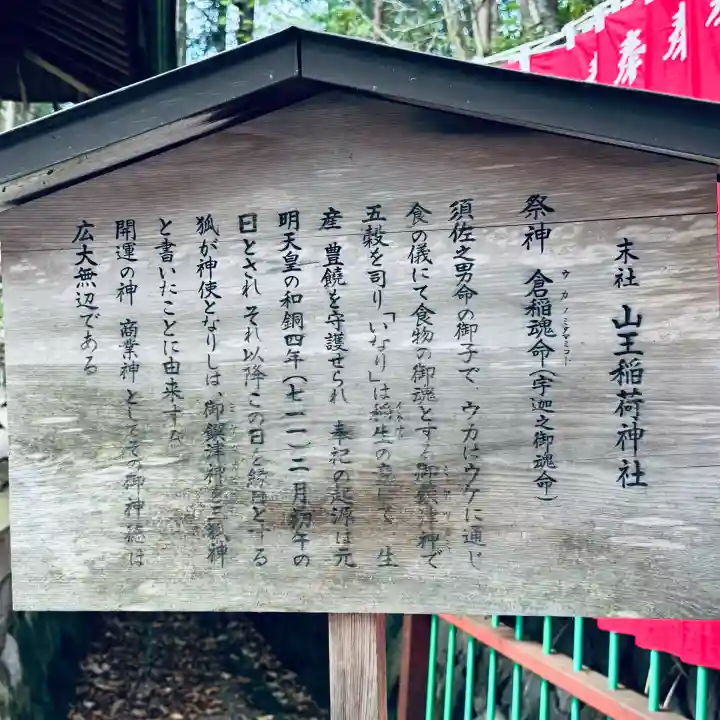 末社 山王稲荷神社
祭神 倉稲魂命(宇迦之御魂命)
ウカノミタマミコト
須佐之男命の御子で、ウカはウケに通じ
食の儀にて食物の御魂とする御饌津神で
五穀を司り「いなり」は稲生の意で、生
産 豊饒を守護せられ 奉祀の起源は元
明天皇の和銅四年(七一一)二月初午の
日とされ それ以降この日を縁日とする
狐が神使となりしは、御饌津神を三狐神
と書いたことに由来する
開運の神 商業神としてその御神徳は
広大無辺である
奉
奉